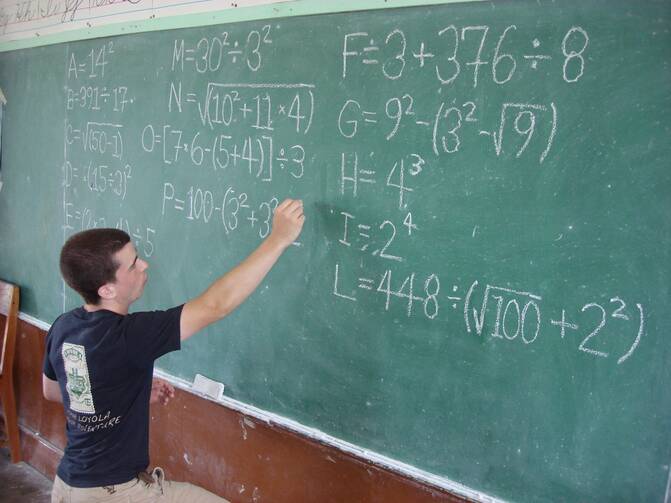 A=14²
B=391÷17
C=√(50-1)
D=(15÷3)²
÷5
M=30²÷3²
N=√(10²+11×4)
O=[7×6-(5+4)]÷3
P=100-(3²+3
F=3+376÷8
G=9²-(3²-√9)
H=4³
I=2⁴
L=448÷(√100+2²)
LOYOLA